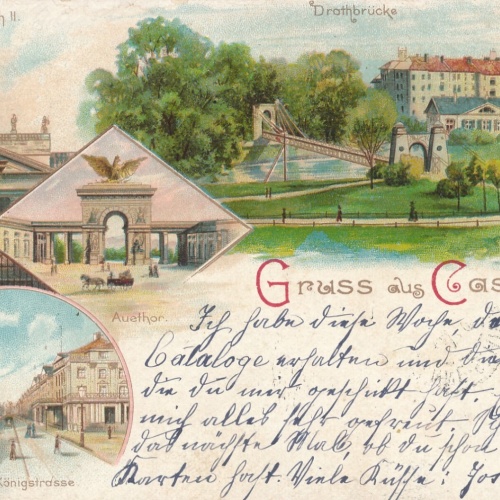 h II.
Drothbrücke
Auethor.
Gruss aus Cas
Königstrasse
Ich habe diese Woche, de
Cataloge erhalten und die
die du mir geschikt hast,
mich alles sehr gefreut.
das nächste Mal, ob du schon
Karten hast. Viele Küsse: